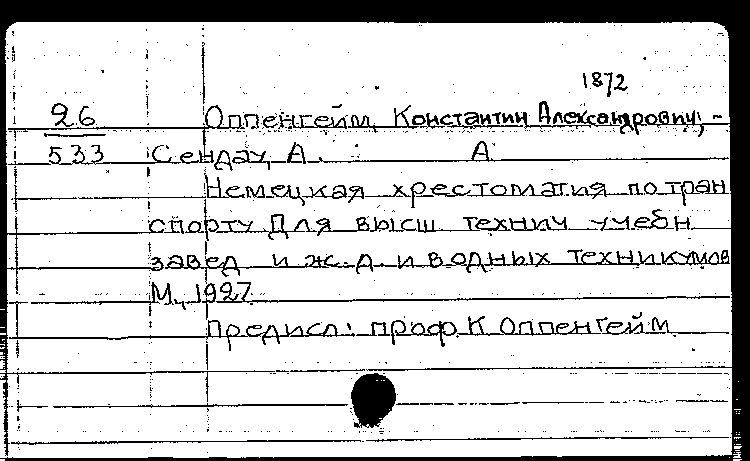 1872
26 Оппенгейм, Константин Александрович, -
533 Сендау, А. А
Немецкая хрестоматия по тран
спорту Для высш технич учебн
завед и ж.д. и водных техникумов
М., 1927
Предисл: проф К Оппенгейм